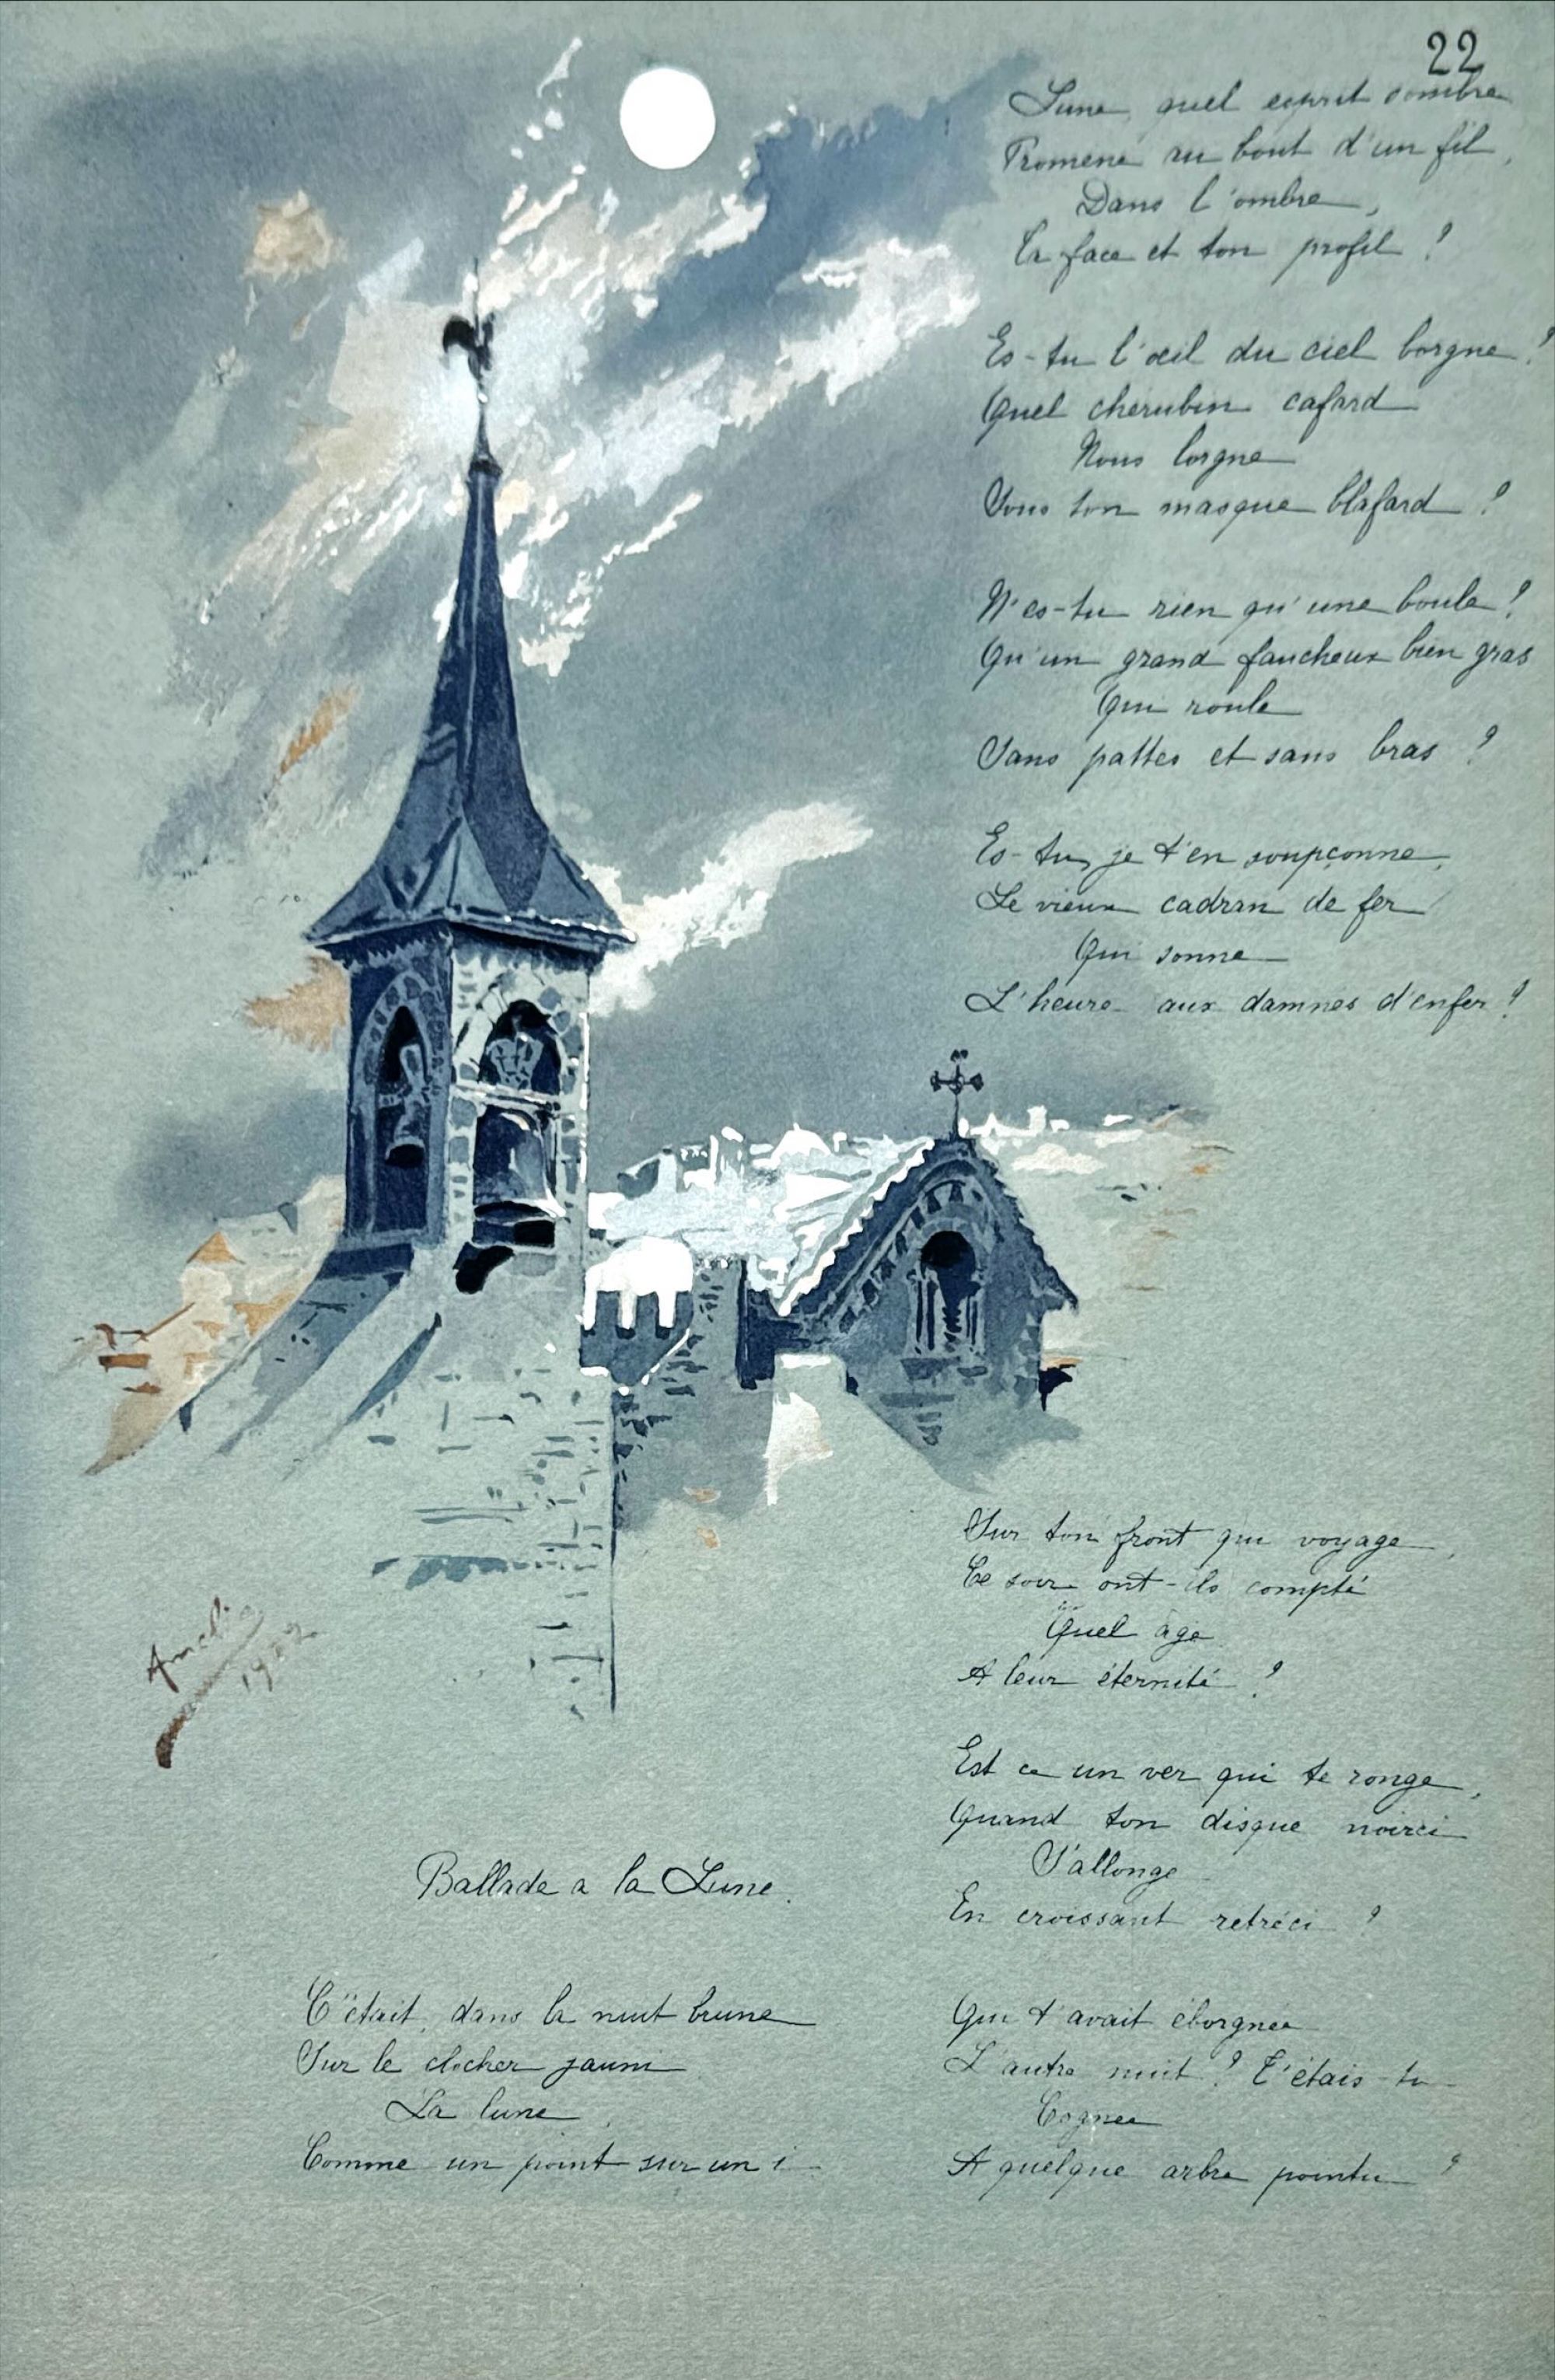 22
Ballade a la Lune.
C'était, dans la nuit brune
Sur le clocher jauni
La lune,
Comme un point sur un i
Lune, quel esprit sombre
Promène au bout d'un fil,
Dans l'ombre,
Ta face et ton profil ?
Es-tu l'œil du ciel borgne ?
Quel chérubin cafard
Nous lorgne
Sous ton masque blafard ?
N'es-tu rien qu'une boule ?
Qu'un grand faucheux bien gras
Qui roule
Sans pattes et sans bras ?
Es-tu, je t'en soupçonne,
Le vieux cadran de fer
Qui sonne
L'heure aux damnés d'enfer ?
Sur ton front qui voyage,
Ce soir ont-ils compté
Quel âge
A leur éternité ?
Est ce un ver qui te ronge,
Quand ton disque noirci
S'allonge
En croissant retréci ?
Qui t'avait éborgnée
L'autre nuit ? T'étais-tu
Cognée
A quelque arbre pointu ?
1902